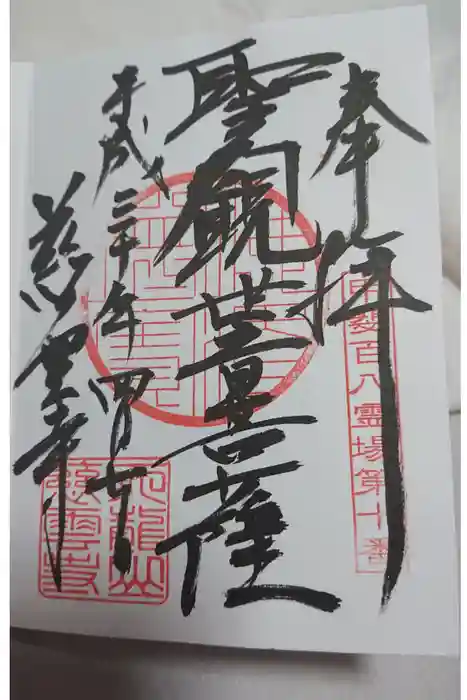 奉拝
甲斐百八霊場第十番
聖観世音菩薩
平成三十年四月七日
慈雲寺
天龍山
慈雲寺